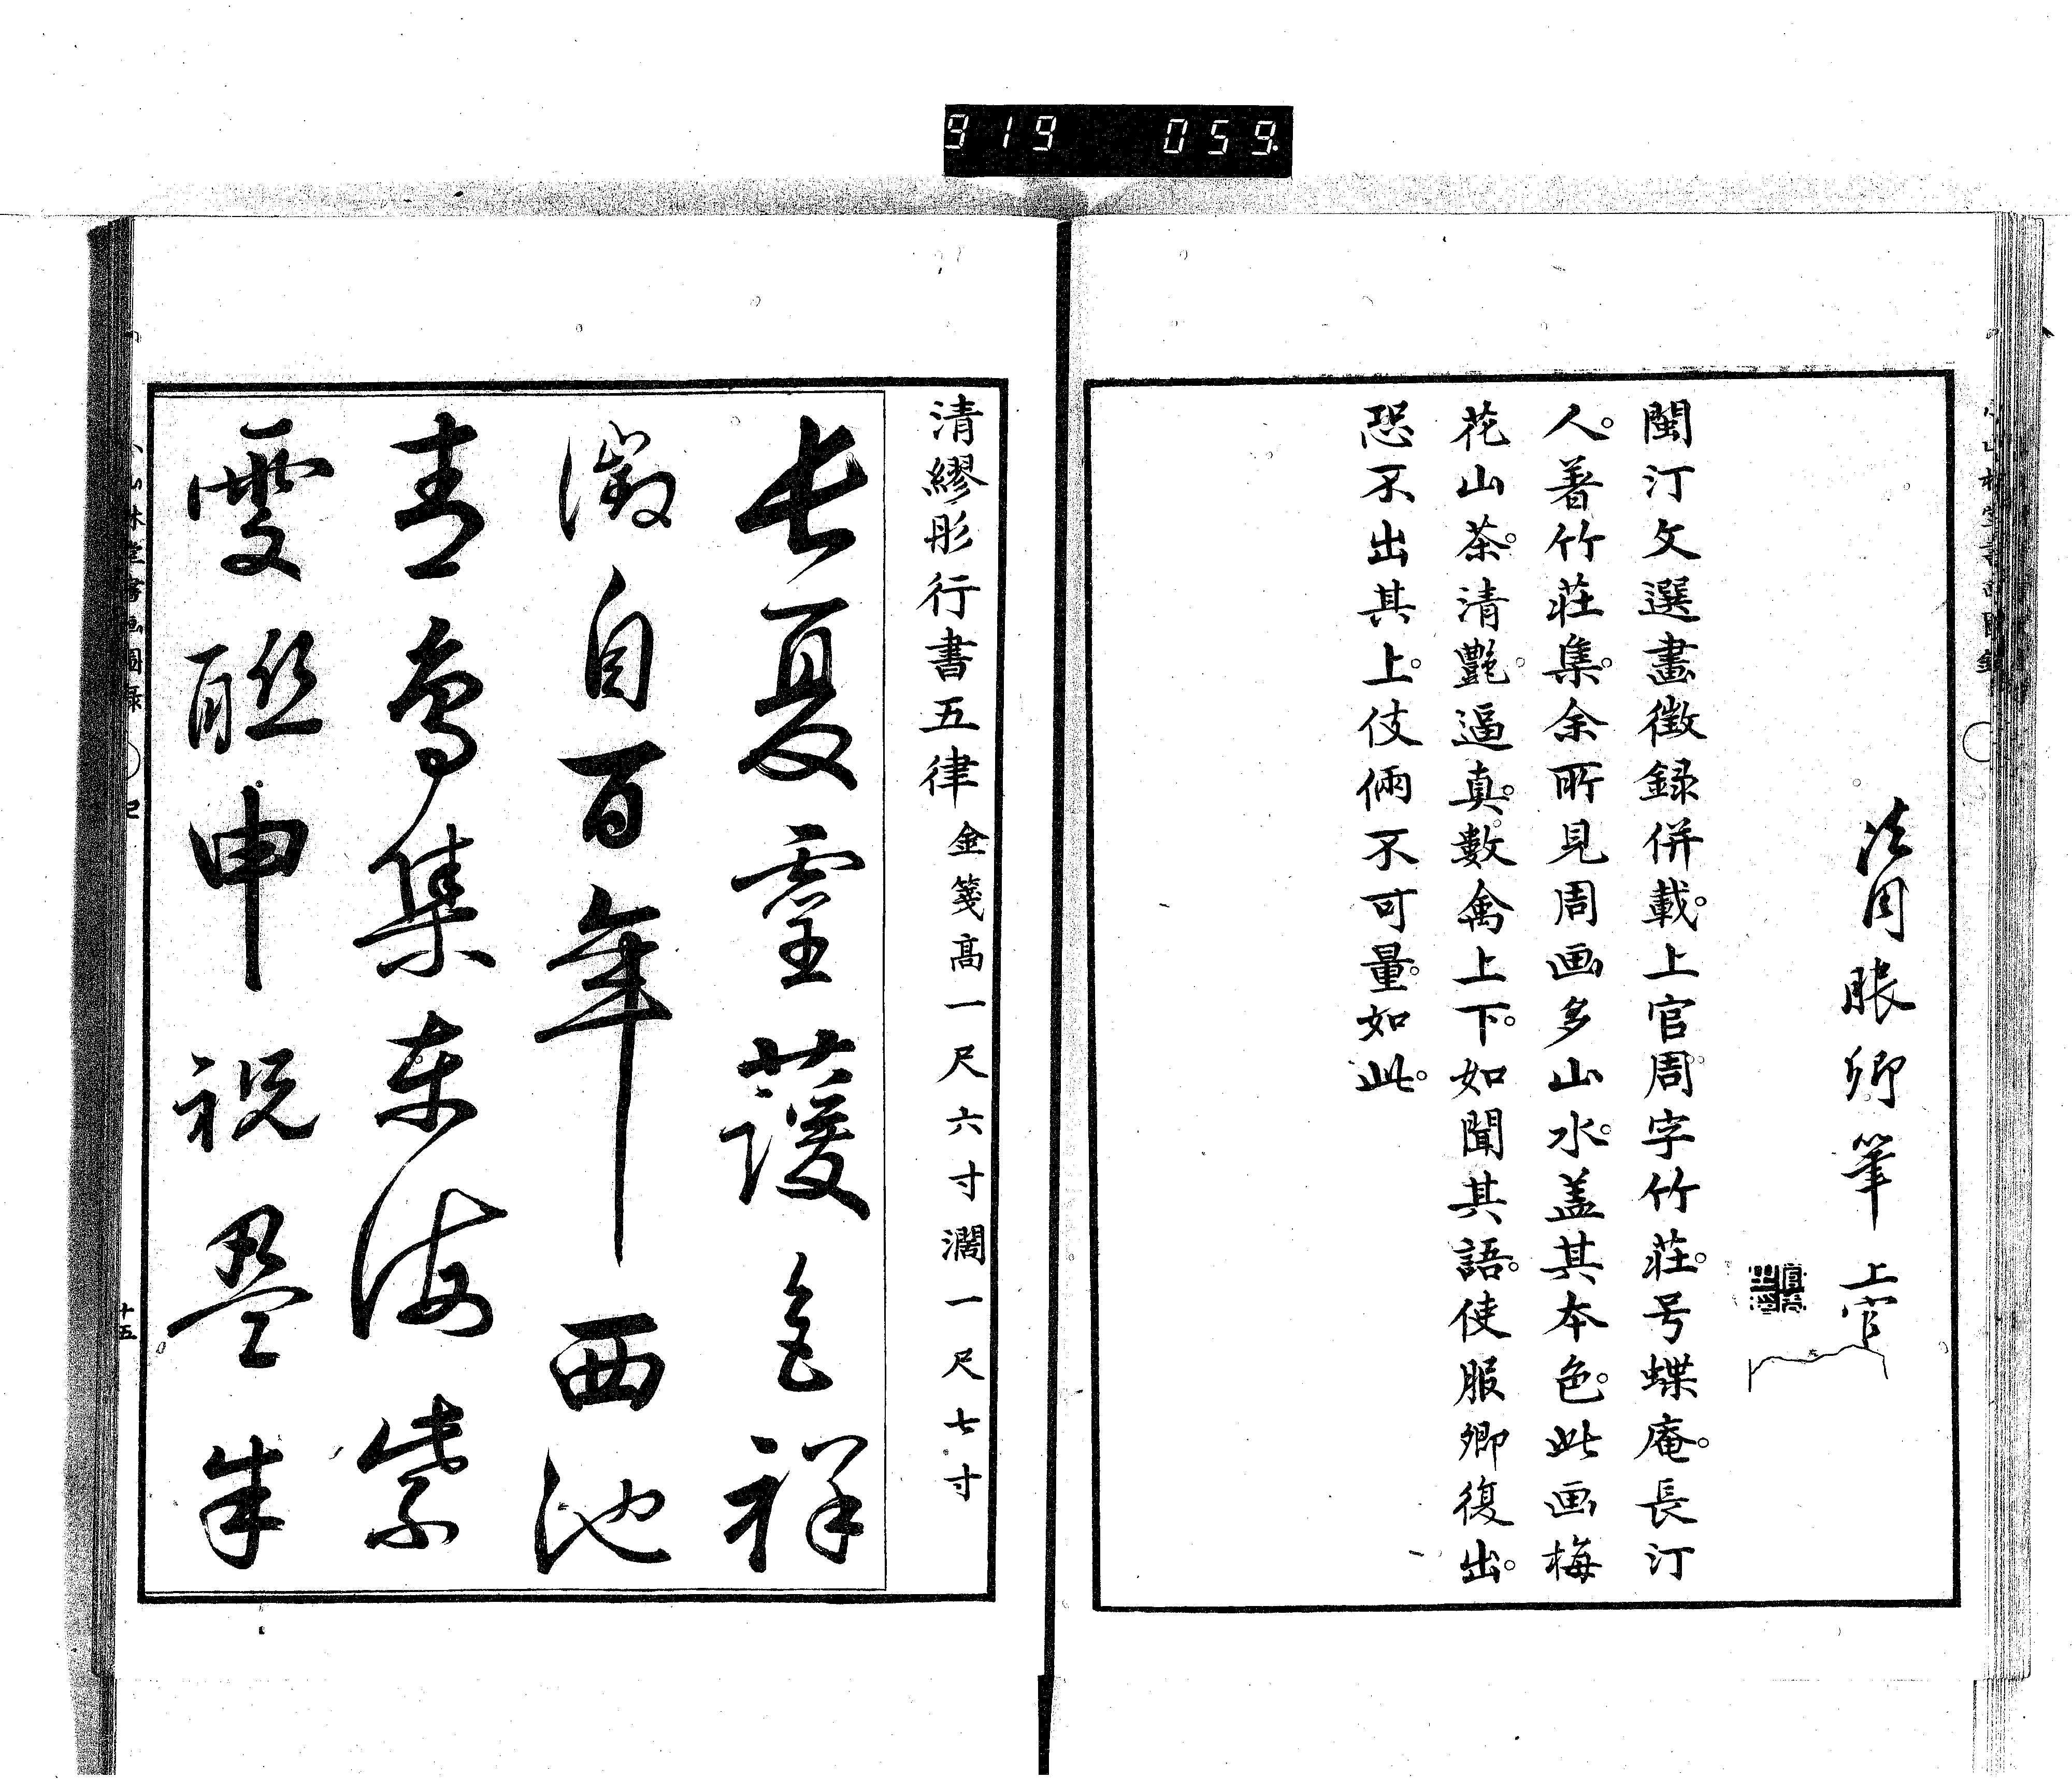 919 059
法周眼卿筆 上官
閩汀文選畫徴録併載。上官周字竹莊。号蝶庵。長汀
人。著竹莊集。余所見周画多山水。盖其本色。此画梅
花山茶。清艷逼真。數禽上下。如聞其語。使服卿復出。
恐不出其上。伎倆不可量。如此。
清繆彤行書五律 金箋高一尺六寸濶一尺七寸
長夏靈護色祥
徴自百年西池
青鳥集東海紫
雯聡申祝盈朱
十五